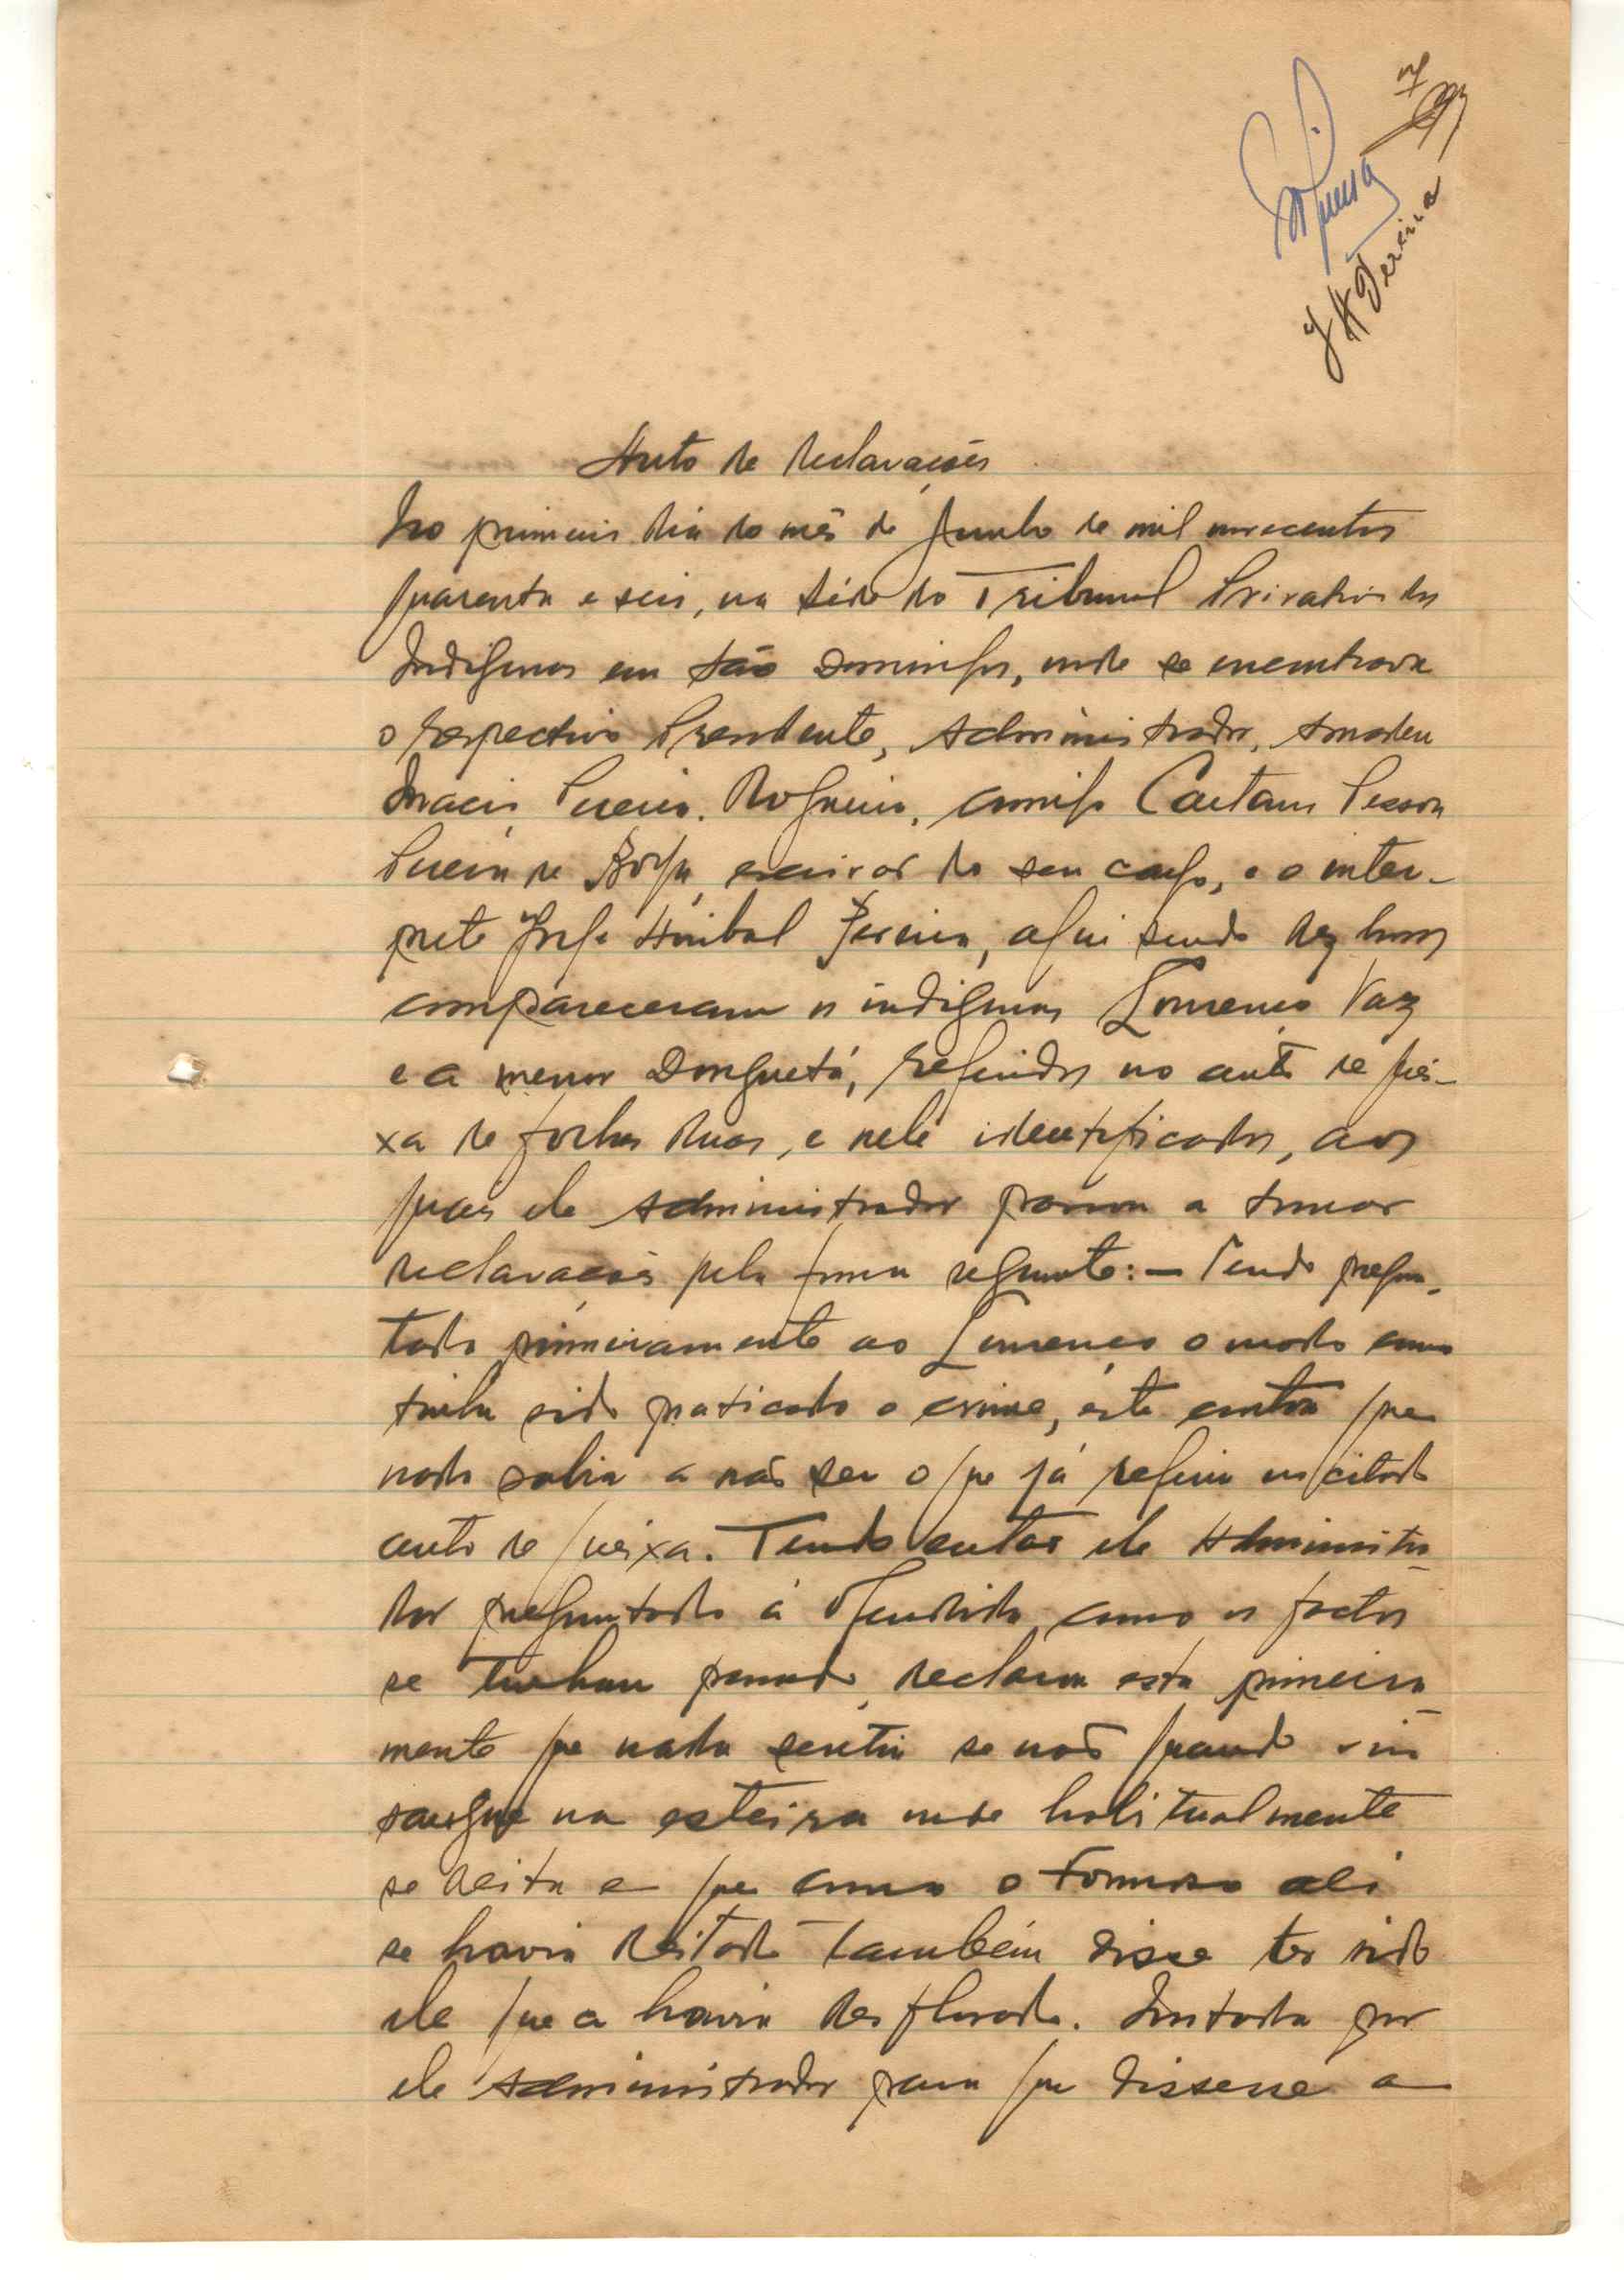 7
JHPereira
Auto de declarações
No primeiro dia do mês de Junho de mil novecentos
quarenta e seis, na séde do Tribunal Privativo dos
Indigenas em São Domingos, onde se encontrava
o respectivo Presidente, Administrador, Amadeu
Inacio Pereira Nogueira, comigo Caetano Pessoa
Pereira de Borja, escrivão do seu cargo, e o inter-
prete Jorge Anibal Pereira, aqui sendo dez horas
compareceram os indigenas Lourenço Vaz
e a menor Donguetá, referidos no auto de quei-
xa de folhas duas, e nele identificados, aos
quais ele Administrador passou a tomar
declarações pela forma seguinte: — Tendo pregun-
tado primeiramente ao Lourenço o modo como
tinha sido praticado o crime, este contou que
nada sabia a não ser o que já referiu no citado
auto de queixa. Tendo então ele Administra-
dor preguntado á ofendida como os factos
se tinham passado, declarou esta primeira-
mente que nada sentiu se não quando viu
sangue na esteira onde habitualmente
se deita e que como o Formoso ali
se havia deitado tambêm disse ter sido
ele que a havia desflorado. Instada por
ele Administrador para que dissesse a